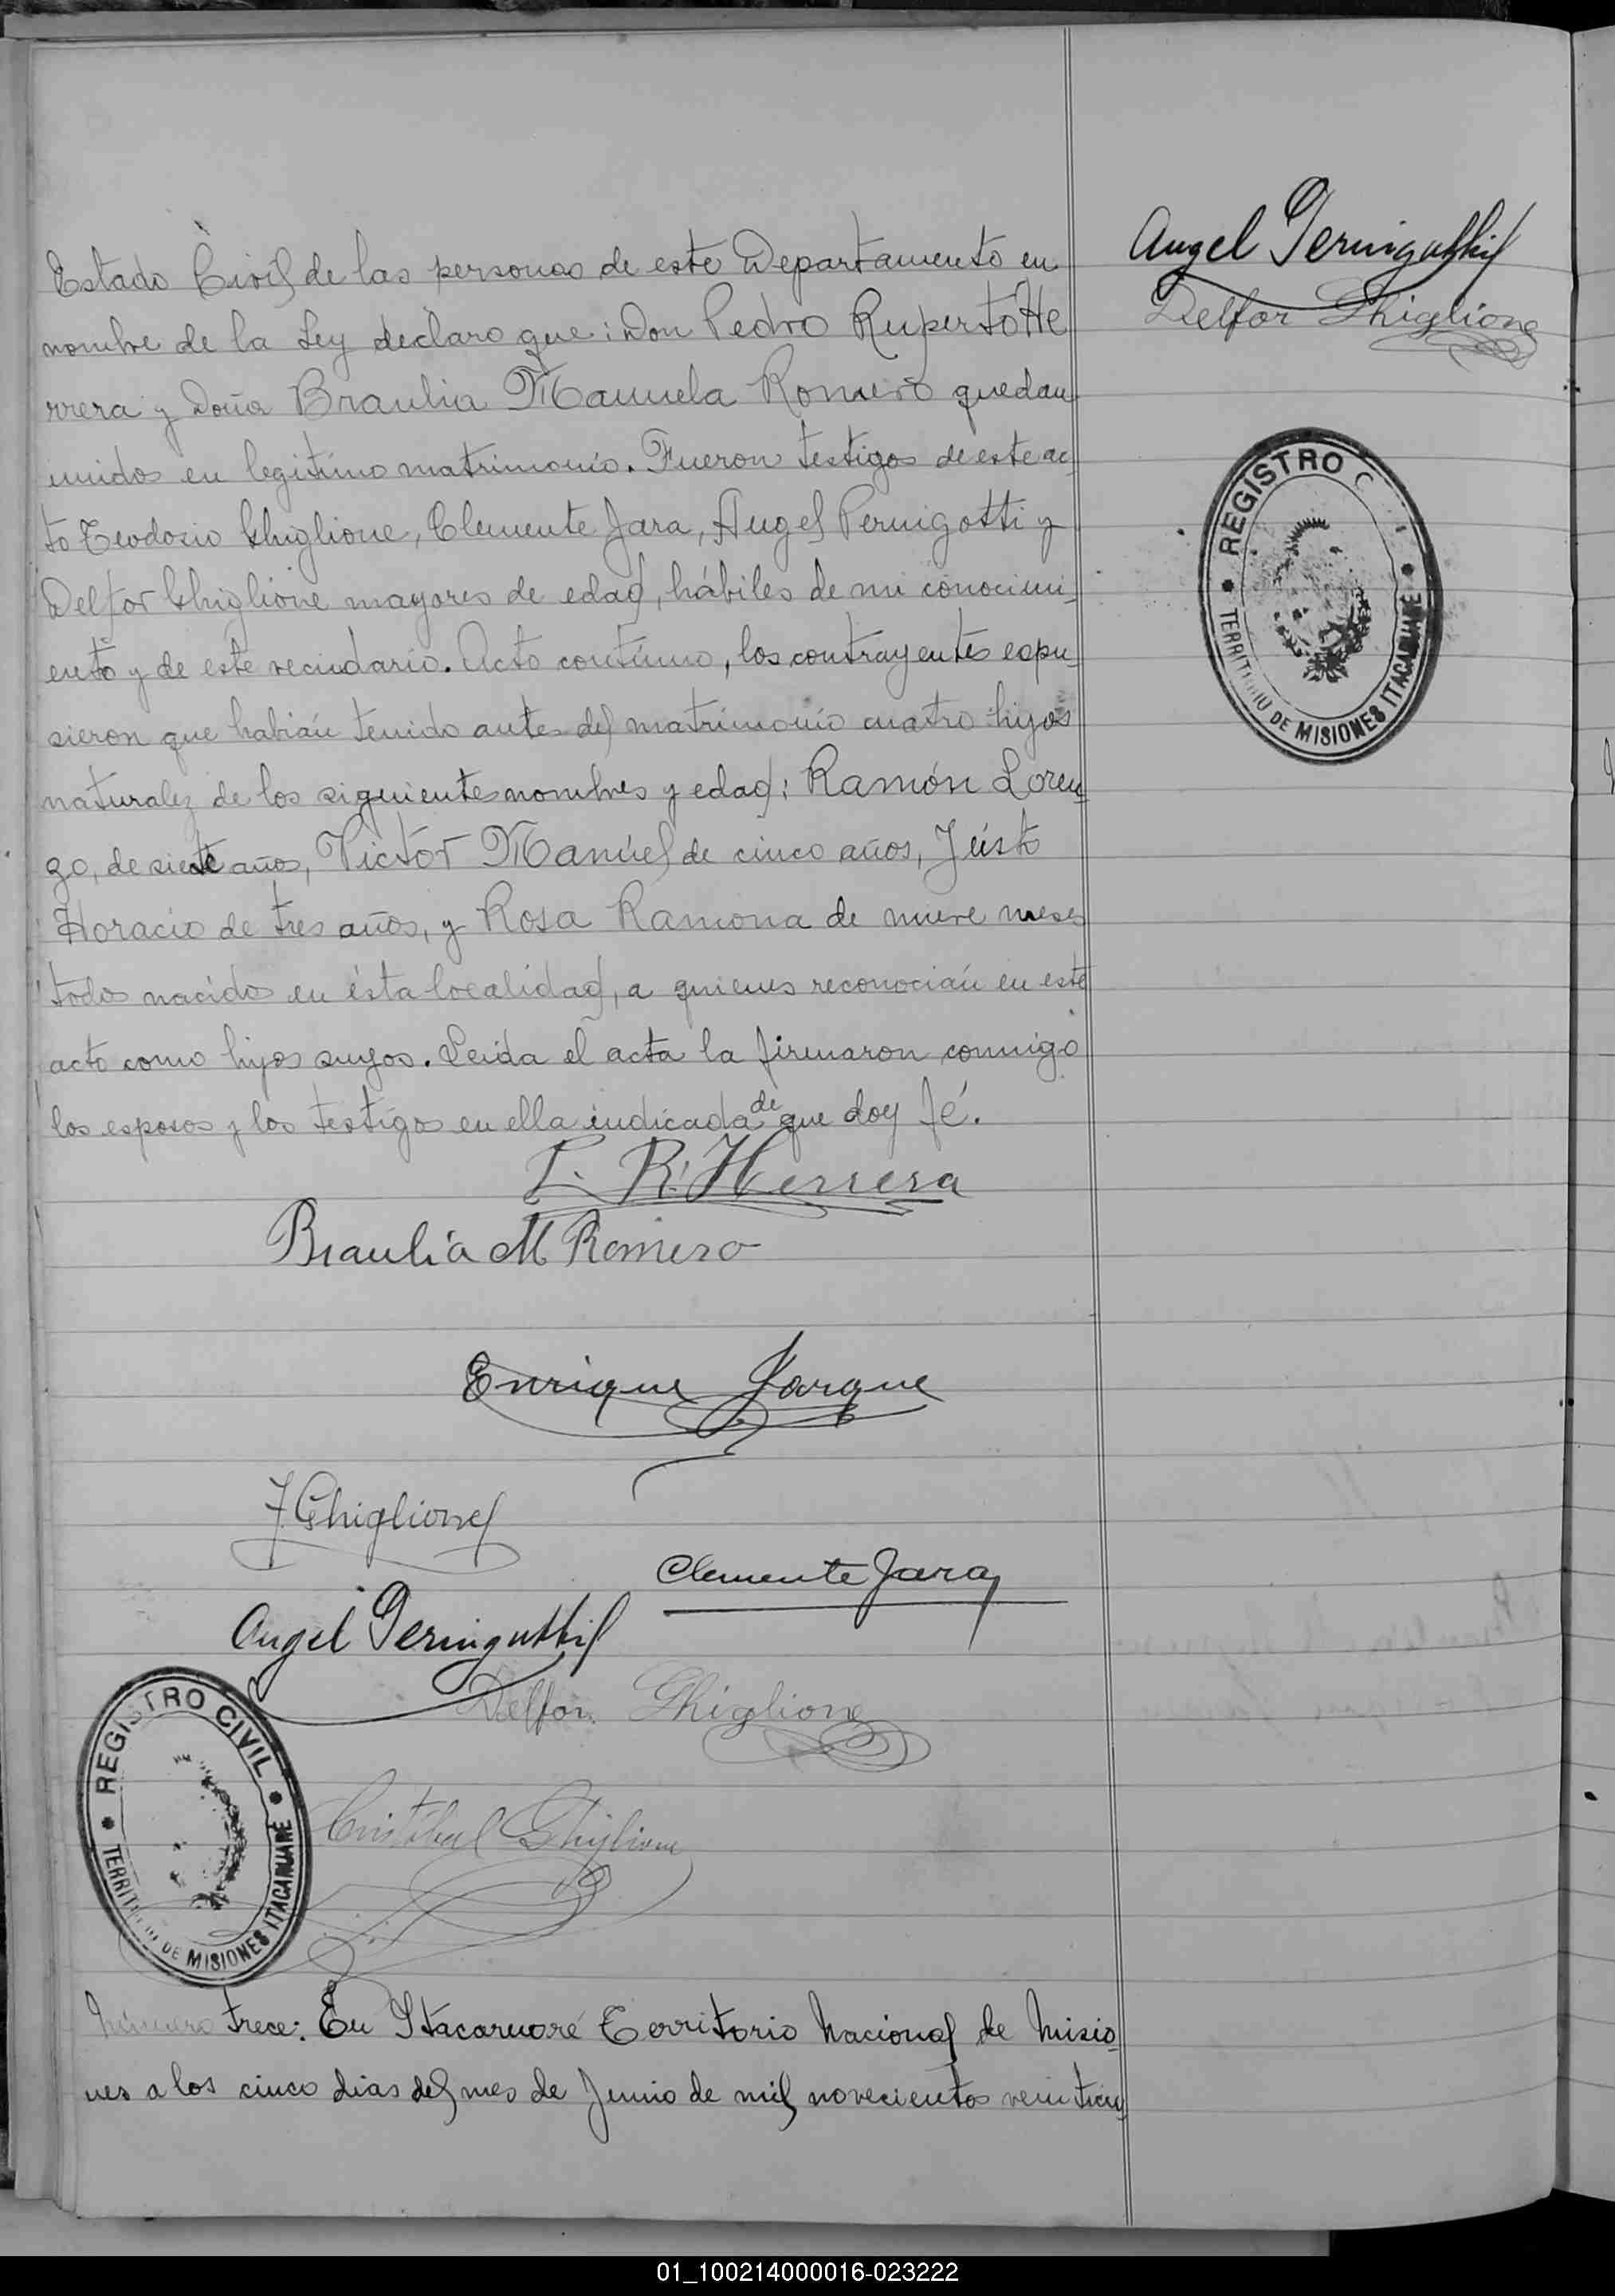 Estado Civil de las personas de este Departamento en
nombre de la Ley declaro que: Don Pedro Ruperto He
rrera y Doña Braulia Manuela Romero quedan
unidos en legitimo matrimonio. Fueron testigos de este ac_
to Teodosio Ghiglione, Clemente Jara, Angel Pernigotti y
Delfor Ghiglione mayores de edad, hábiles de mi conocimi_
ento y de este vecindario. Acto contínuo, los contrayentes espu_
sieron que habían tenido antes del matrimonio cuatro hijos
naturalez de los siguientes nombres y edad: Ramón Loren_
zo, de siete años, Victor Manuel de cinco años, Justo
Horacio de tres años, y Rosa Ramona de nueve meses
todos nacidos en ésta localidad, a quienes reconocían en este
acto como hijos suyos. Leída el acta la firmaron conmigo
los esposos y los testigos en ella indicada de que doy fé.
P. R. Herrera
Braulia M Romero
Enrique Jarque
T Ghiglione
Clemente Jara
Angel Pernigotti
Delfor Ghiglione
Cristóbal Ghiglione
REGISTRO CIVIL
TERRITORIO DE MISIONES ITACARUARÉ
Número trece: En Itacaruaré Territorio Nacional de Misio_
nes a los cinco dias del mes de Junio de mil novecientos veinticin_
Angel Pernigotti
Delfor Ghiglione
REGISTRO C
TERRITORIO DE MISIONES ITACARUARÉ
01_100214000016-023222